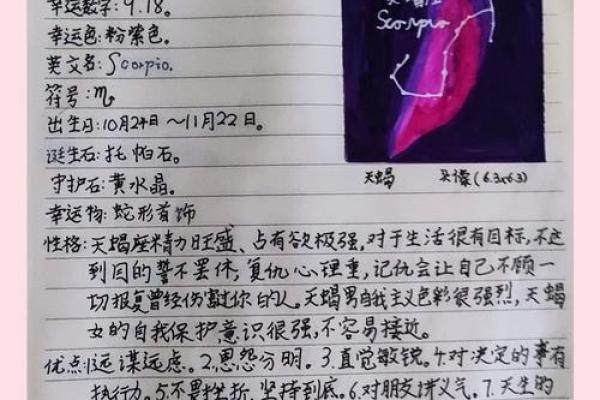 幸运数字:9.18。
幸运色:粉紫色。
英文名:Scorpio.
Scorpio
符号:♏
出生日:10月24日～11月22日。
诞生石:托帕石。
天蝎
(6.3x6.3)
守护石:黄水晶。
幸运物:蛇形首饰
性格:天蝎座精力旺盛、占有欲极强,对于生活很有目标,不达
到目的誓不罢休,复仇心理重,记仇会让自己不顾一
切报复曾经伤害过你的人。天蝎男自我主义色彩很强烈,天蝎
女的自我保护意识很强,不容易接近。
优点:1.远谋远虑。2.恩怨分明。3.直觉敏锐。4.对决定的事有
执行力。5.不畏挫折、坚持到底。6.对朋友讲义气。7.天生的